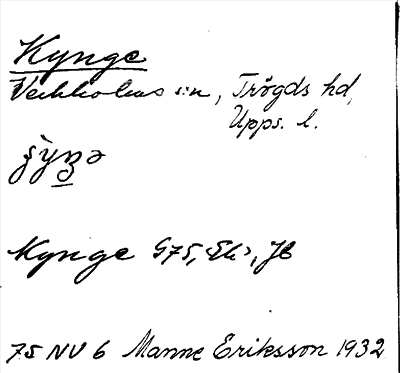 Kynge
Veckholms sn, Trögds hd,
Upps. l.
Kynge G75, Ek, JB
75 NV 6 Manne Eriksson 1932